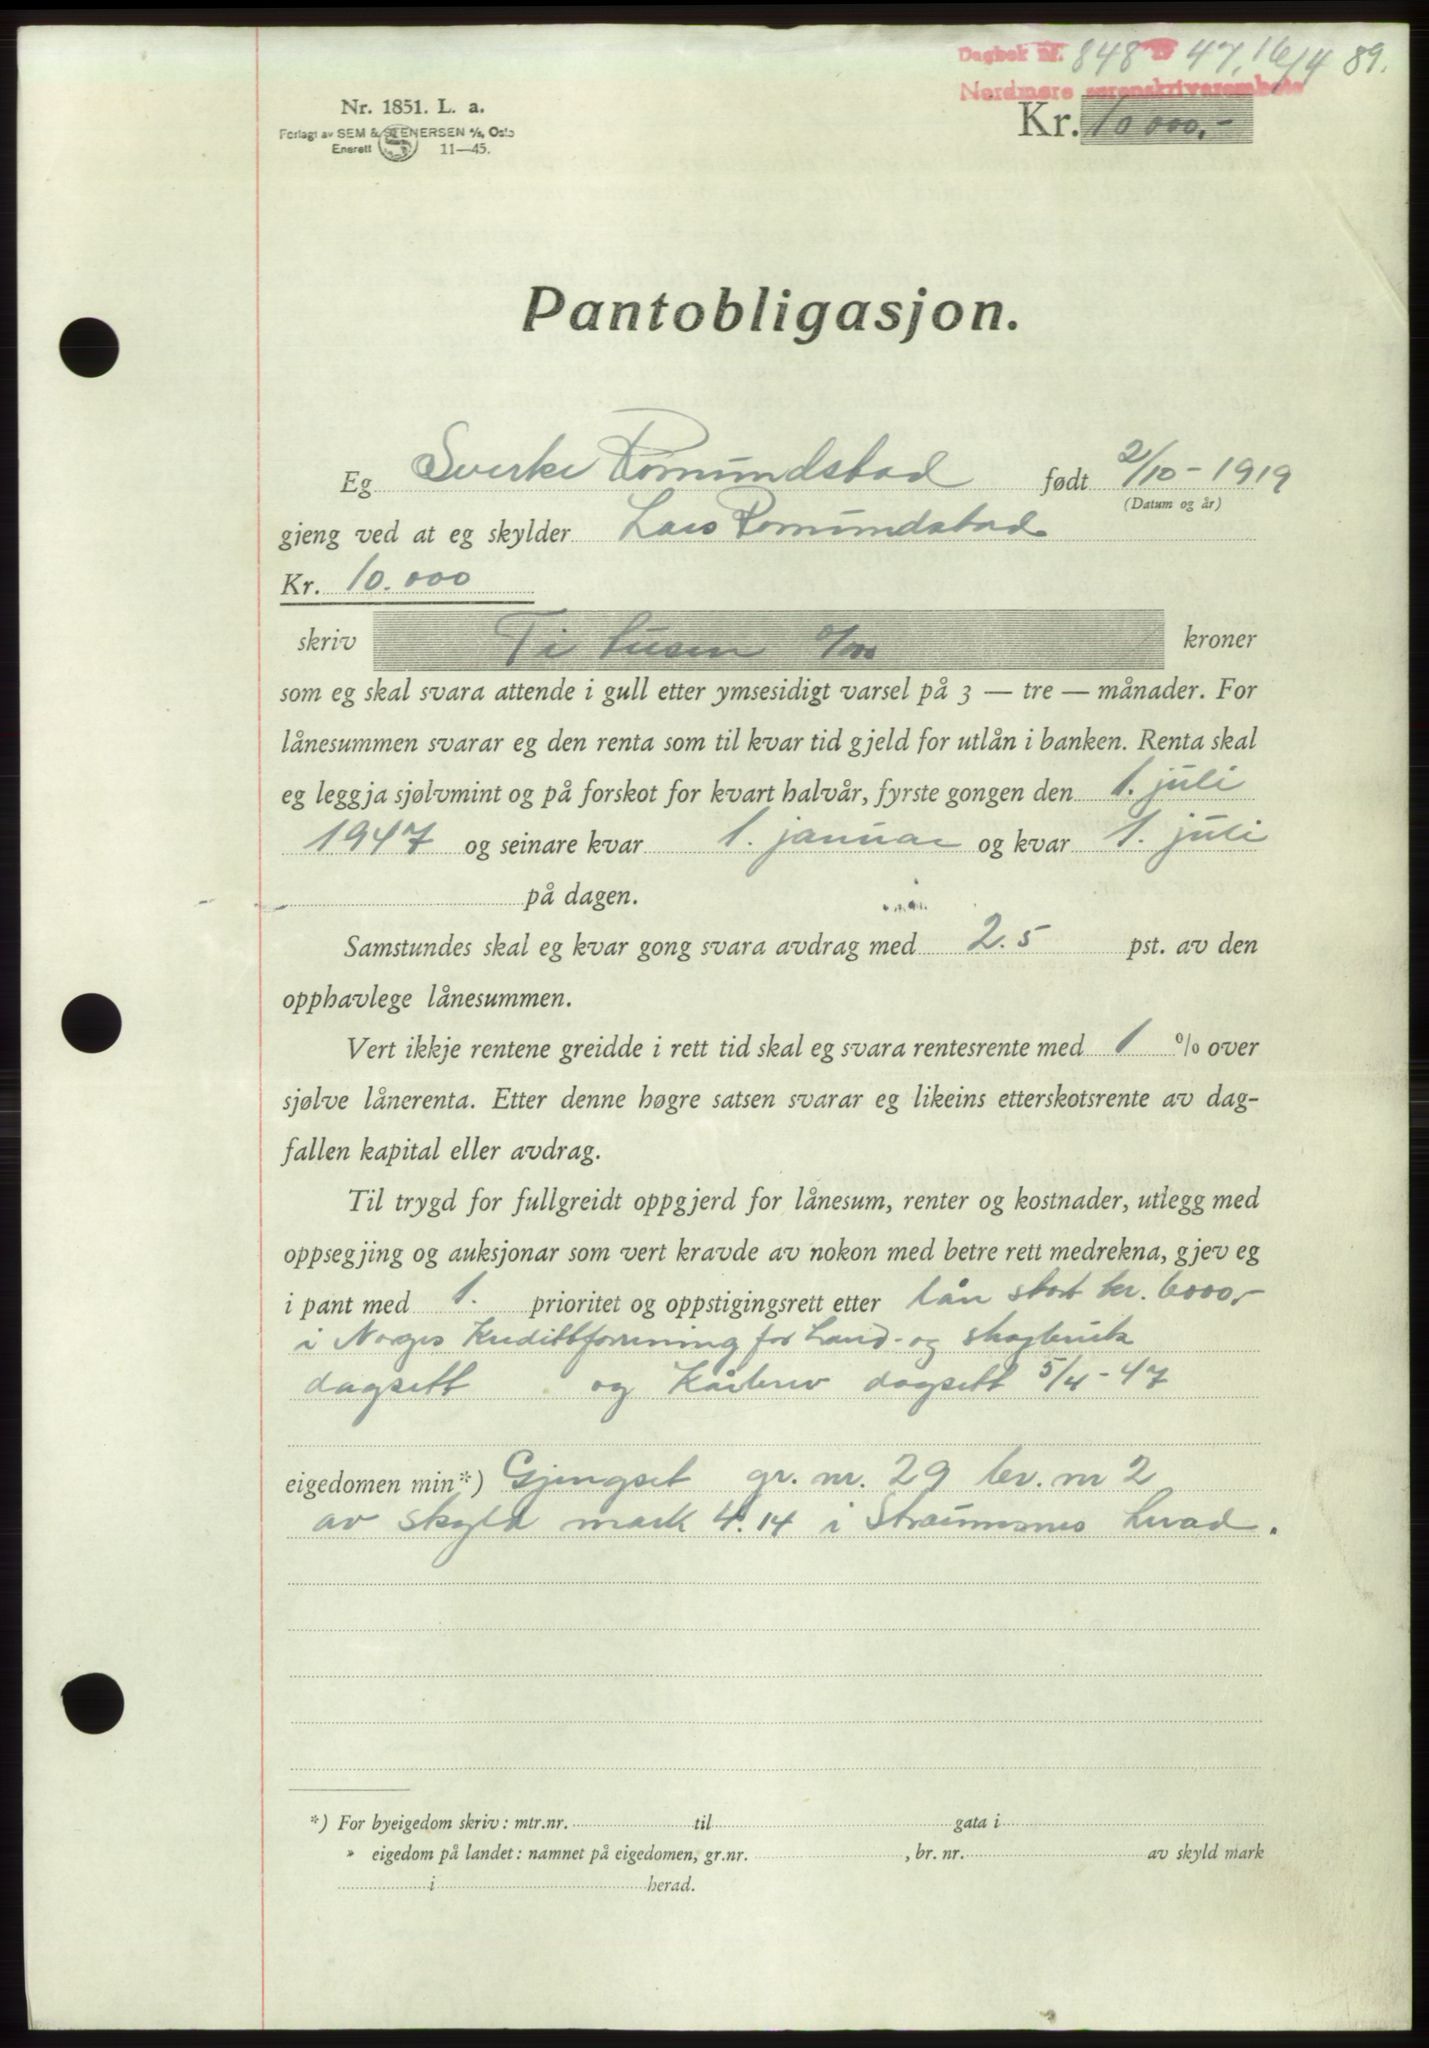 Dagbok nr. 848 19 47, 16/4 89.
Nordmøre sorenskriverembete
Nr. 1851. L. a.
Forlagt av SEM & STENERSEN A/S, Oslo
Enerett 11—45.
Kr. 10 000,-
Pantobligasjon.
Eg Sverke Romundstad født 2/10 - 1919
(Datum og år)
gjeng ved at eg skylder Lars Romundstad
Kr. 10.000
skriv Ti tusen 0/00 kroner
som eg skal svara attende i gull etter ymsesidigt varsel på 3 — tre — månader. For
lånesummen svarar eg den renta som til kvar tid gjeld for utlån i banken. Renta skal
eg leggja sjølvmint og på forskot for kvart halvår, fyrste gongen den 1. juli
1947 og seinare kvar 1. januar og kvar 1. juli
på dagen.
Samstundes skal eg kvar gong svara avdrag med 2.5 pst. av den
opphavlege lånesummen.
Vert ikkje rentene greidde i rett tid skal eg svara rentesrente med 1 % over
sjølve lånerenta. Etter denne høgre satsen svarar eg likeins etterskotsrente av dag-
fallen kapital eller avdrag.
Til trygd for fullgreidt oppgjerd for lånesum, renter og kostnader, utlegg med
oppsegjing og auksjonar som vert kravde av nokon med betre rett medrekna, gjev eg
i pant med 1. prioritet og oppstigingsrett etter lån stort kr. 6000,-
i Norges Kredittforening for Land- og skogbruk
dagsett og Kårbrev dagsett 5/4 - 47
eigedomen min*) Gjengset gr. nr. 29 br. nr 2
av skyld mark 4.14 i Straumsnes herad.
*) For byeigedom skriv: mtr.nr. til gata i
» eigedom på landet: namnet på eigedomen, gr.nr. , br. nr. av skyld mark
i herad.